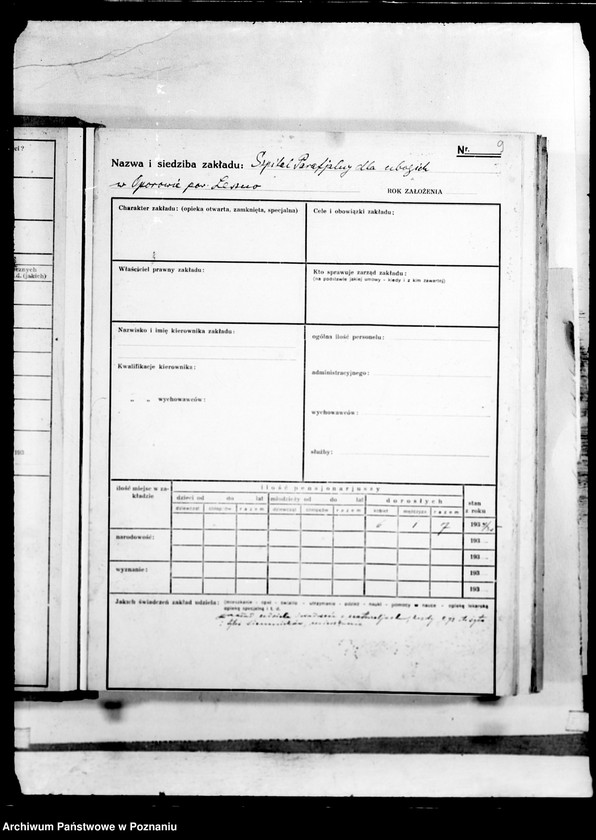 ci ?
Nr. 9
Nazwa i siedziba zakładu: Szpital Parafjalny dla ubogich
w Oporowie pow. Leszno
ROK ZAŁOŻENIA
Charakter zakładu: (opieka otwarta, zamknięta, specjalna)
Cele i obowiązki zakładu;
Właściciel prawny zakładu:
Kto sprawuje zarząd zakładu:
(na podstawie jakiej umowy - kiedy i z kim zawartej)
cznych
d. (jakich)
Nazwisko i imię kierownika zakładu:
ogólna ilość personelu:
Kwalifikacje kierownika:
administracyjnego:
„ „ wychowawców:
wychowawców:
służby:
193
ilość miejsc w zakładzie
ilość pensjonarjuszy
dzieci od do lat
młodzieży od do lat
dorosłych
stan z roku
dziewcząt
chłopców
razem
dziewcząt
chłopców
razem
kobiet
mężczyzn
razem
6 1 7
193
narodowość:
193
193
wyznanie:
193
Jakich świadczeń zakład udziela: (mieszkanie - opał - światło - utrzymanie - odzież - nauki - pomocy w nauce - opiekę lekarską
opiekę specjalną i t. d.
zakład udziela
Archiwum Państwowe w Poznaniu